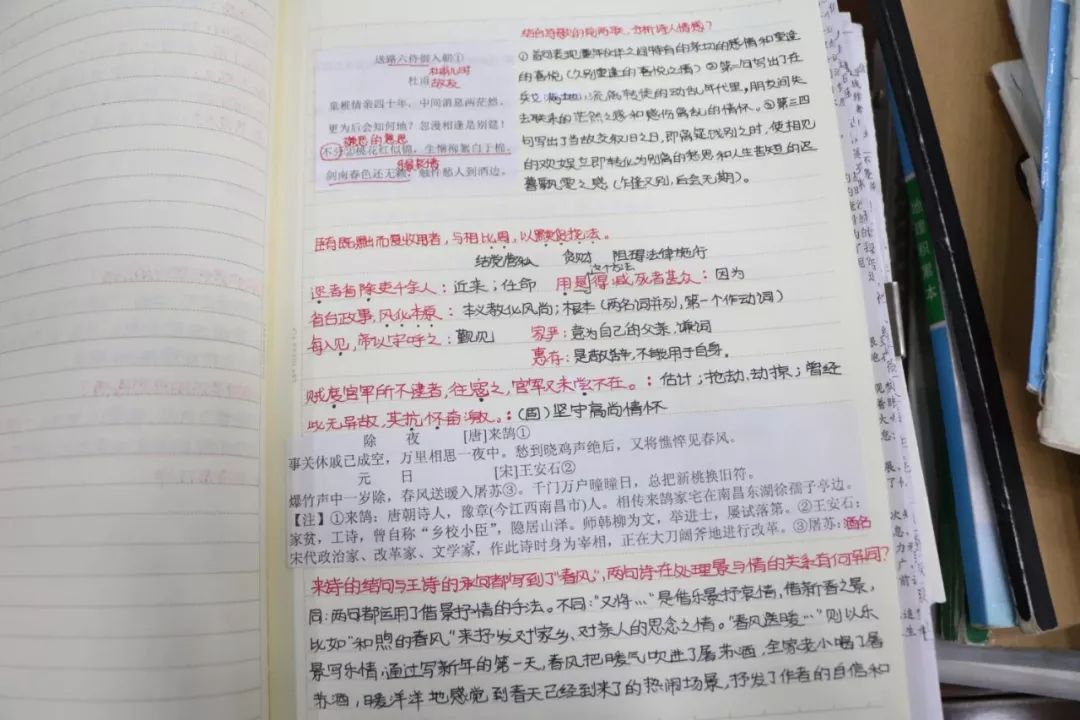 结合诗歌的前两联，分析诗人情感？
送路六侍御入朝①
杜甫儿时
杜甫 故友
童稚情亲四十年，中间消息两茫然。
更为后会知何地？忽漫相逢是别筵！
嫌恶的意思
不分桃花红似锦，生憎柳絮白于棉。
剑南春色还无赖，触忤愁人到酒边。
①首句表现童年伙伴之间特有的亲切的感情和重逢
的喜悦（久别重逢的喜悦之情）②第二句写出了在
兵戈满地，流离转徙的动乱年代里，朋友间失
去联系的茫然之感和感伤离乱的情怀。③第三四
句写出了当故交叙旧之日，即离筵饯别之时，使相见
的欢娱立即转化为别离的愁思和人生苦短的迟
暮飘零之感（乍逢又别，后会无期）。
至有既黜而复收用者，与相比周，以黩货挠法。
结党营私 贪财 阻碍法律施行
这个方法
迩者皆除吏千余人：近来；任命 用是得减死者甚众：因为
省台政事，风化本原：本义教化风尚；根本（两名词并列，第一个作动词）
每入见，帝以字呼之：觐见 家尊：意为自己的父亲，谦词
惠存：是敬告辞，不能用于自身。
贼度官军所不逮者，往寇之，官军又未尝不在。：估计；抢劫、劫掠；曾经
此无异故，其抗怀奋激。：（周）坚守高尚情怀
除 夜 [唐]来鹄①
事关休戚已成空，万里相思一夜中。愁到晓鸡声绝后，又将憔悴见春风。
元 日 [宋]王安石②
爆竹声中一岁除，春风送暖入屠苏③。千门万户曈曈日，总把新桃换旧符。
【注】①来鹄：唐朝诗人，豫章(今江西南昌市)人。相传来鹄家宅在南昌东湖徐孺子亭边。
家贫，工诗，曾自称“乡校小臣”，隐居山泽。师韩柳为文，举进士，屡试落第。②王安石：
宋代政治家、改革家、文学家，作此诗时身为宰相，正在大刀阔斧地进行改革。③屠苏：酒名
来诗的结句与王诗的承句都写到了“春风”，两句诗在处理景与情的关系有何异同？
同：两句都运用了借景抒情的手法。不同：“又将…”是借乐景抒哀情，借新春之景，
比如“和煦的春风”来抒发对家乡、对亲人的思念之情。“春风送暖…”则以乐
景写乐情，通过写新年的第一天，春风把暖气吹进了屠苏酒，全家老小喝了屠
苏酒，暖洋洋地感觉到春天已经到来了的热闹场景，抒发了作者的自信和
地理积累本